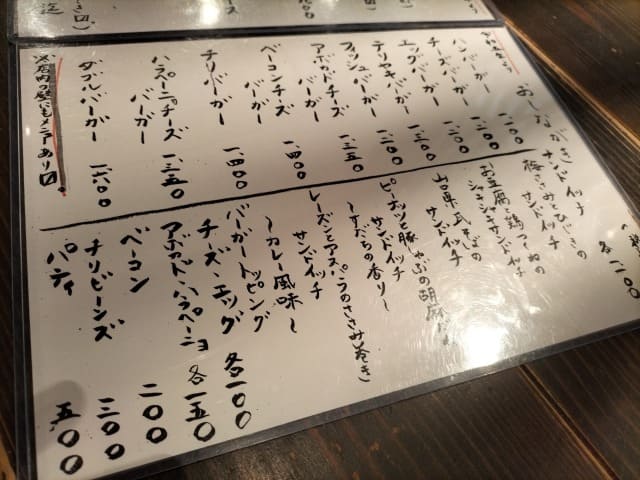 おしながき
ハンバーガー 一、一〇〇
チーズバーガー 一、二〇〇
エッグバーガー 一、二〇〇
テリヤキバーガー 一、二〇〇
フィッシュバーガー
アボカドチーズ
バーガー 一、三五〇
ベーコンチーズ
バーガー 一、四〇〇
チリバーガー 一、四〇〇
ハラペーニョチーズ
バーガー 一、三五〇
ダブルバーガー 一、六〇〇
※店内の壁にもメニューあり〼。
サンドイッチ
各一、一〇〇
梅ささみとひじきの
サンドイッチ
お豆腐と鶏つくねの
シャキシャキサンドイッチ
山口県瓦そばの
サンドイッチ
ピーナッツと豚しゃぶの胡麻
サンドイッチ
〜すだちの香り〜
レーズンとアスパラのささみ巻き
サンドイッチ
〜カレー風味〜
バーガートッピング
チーズ・エッグ 各一〇〇
アボカド・ハラペーニョ 各一五〇
ベーコン 二〇〇
チリビーンズ 三〇〇
パティ 五〇〇